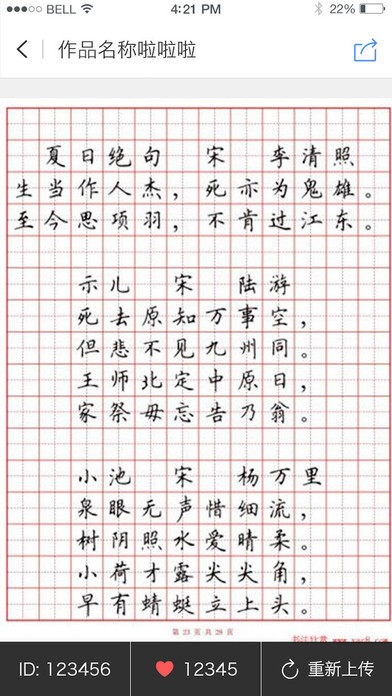 BELL 4:21 PM 22%
作品名称啦啦啦
夏日绝句 宋 李清照
生当作人杰，死亦为鬼雄。
至今思项羽，不肯过江东。
示儿 宋 陆游
死去原知万事空，
但悲不见九州同。
王师北定中原日，
家祭毋忘告乃翁。
小池 宋 杨万里
泉眼无声惜细流，
树阴照水爱晴柔。
小荷才露尖尖角，
早有蜻蜓立上头。
第 23 页 共 28 页
ID: 123456 12345 重新上传